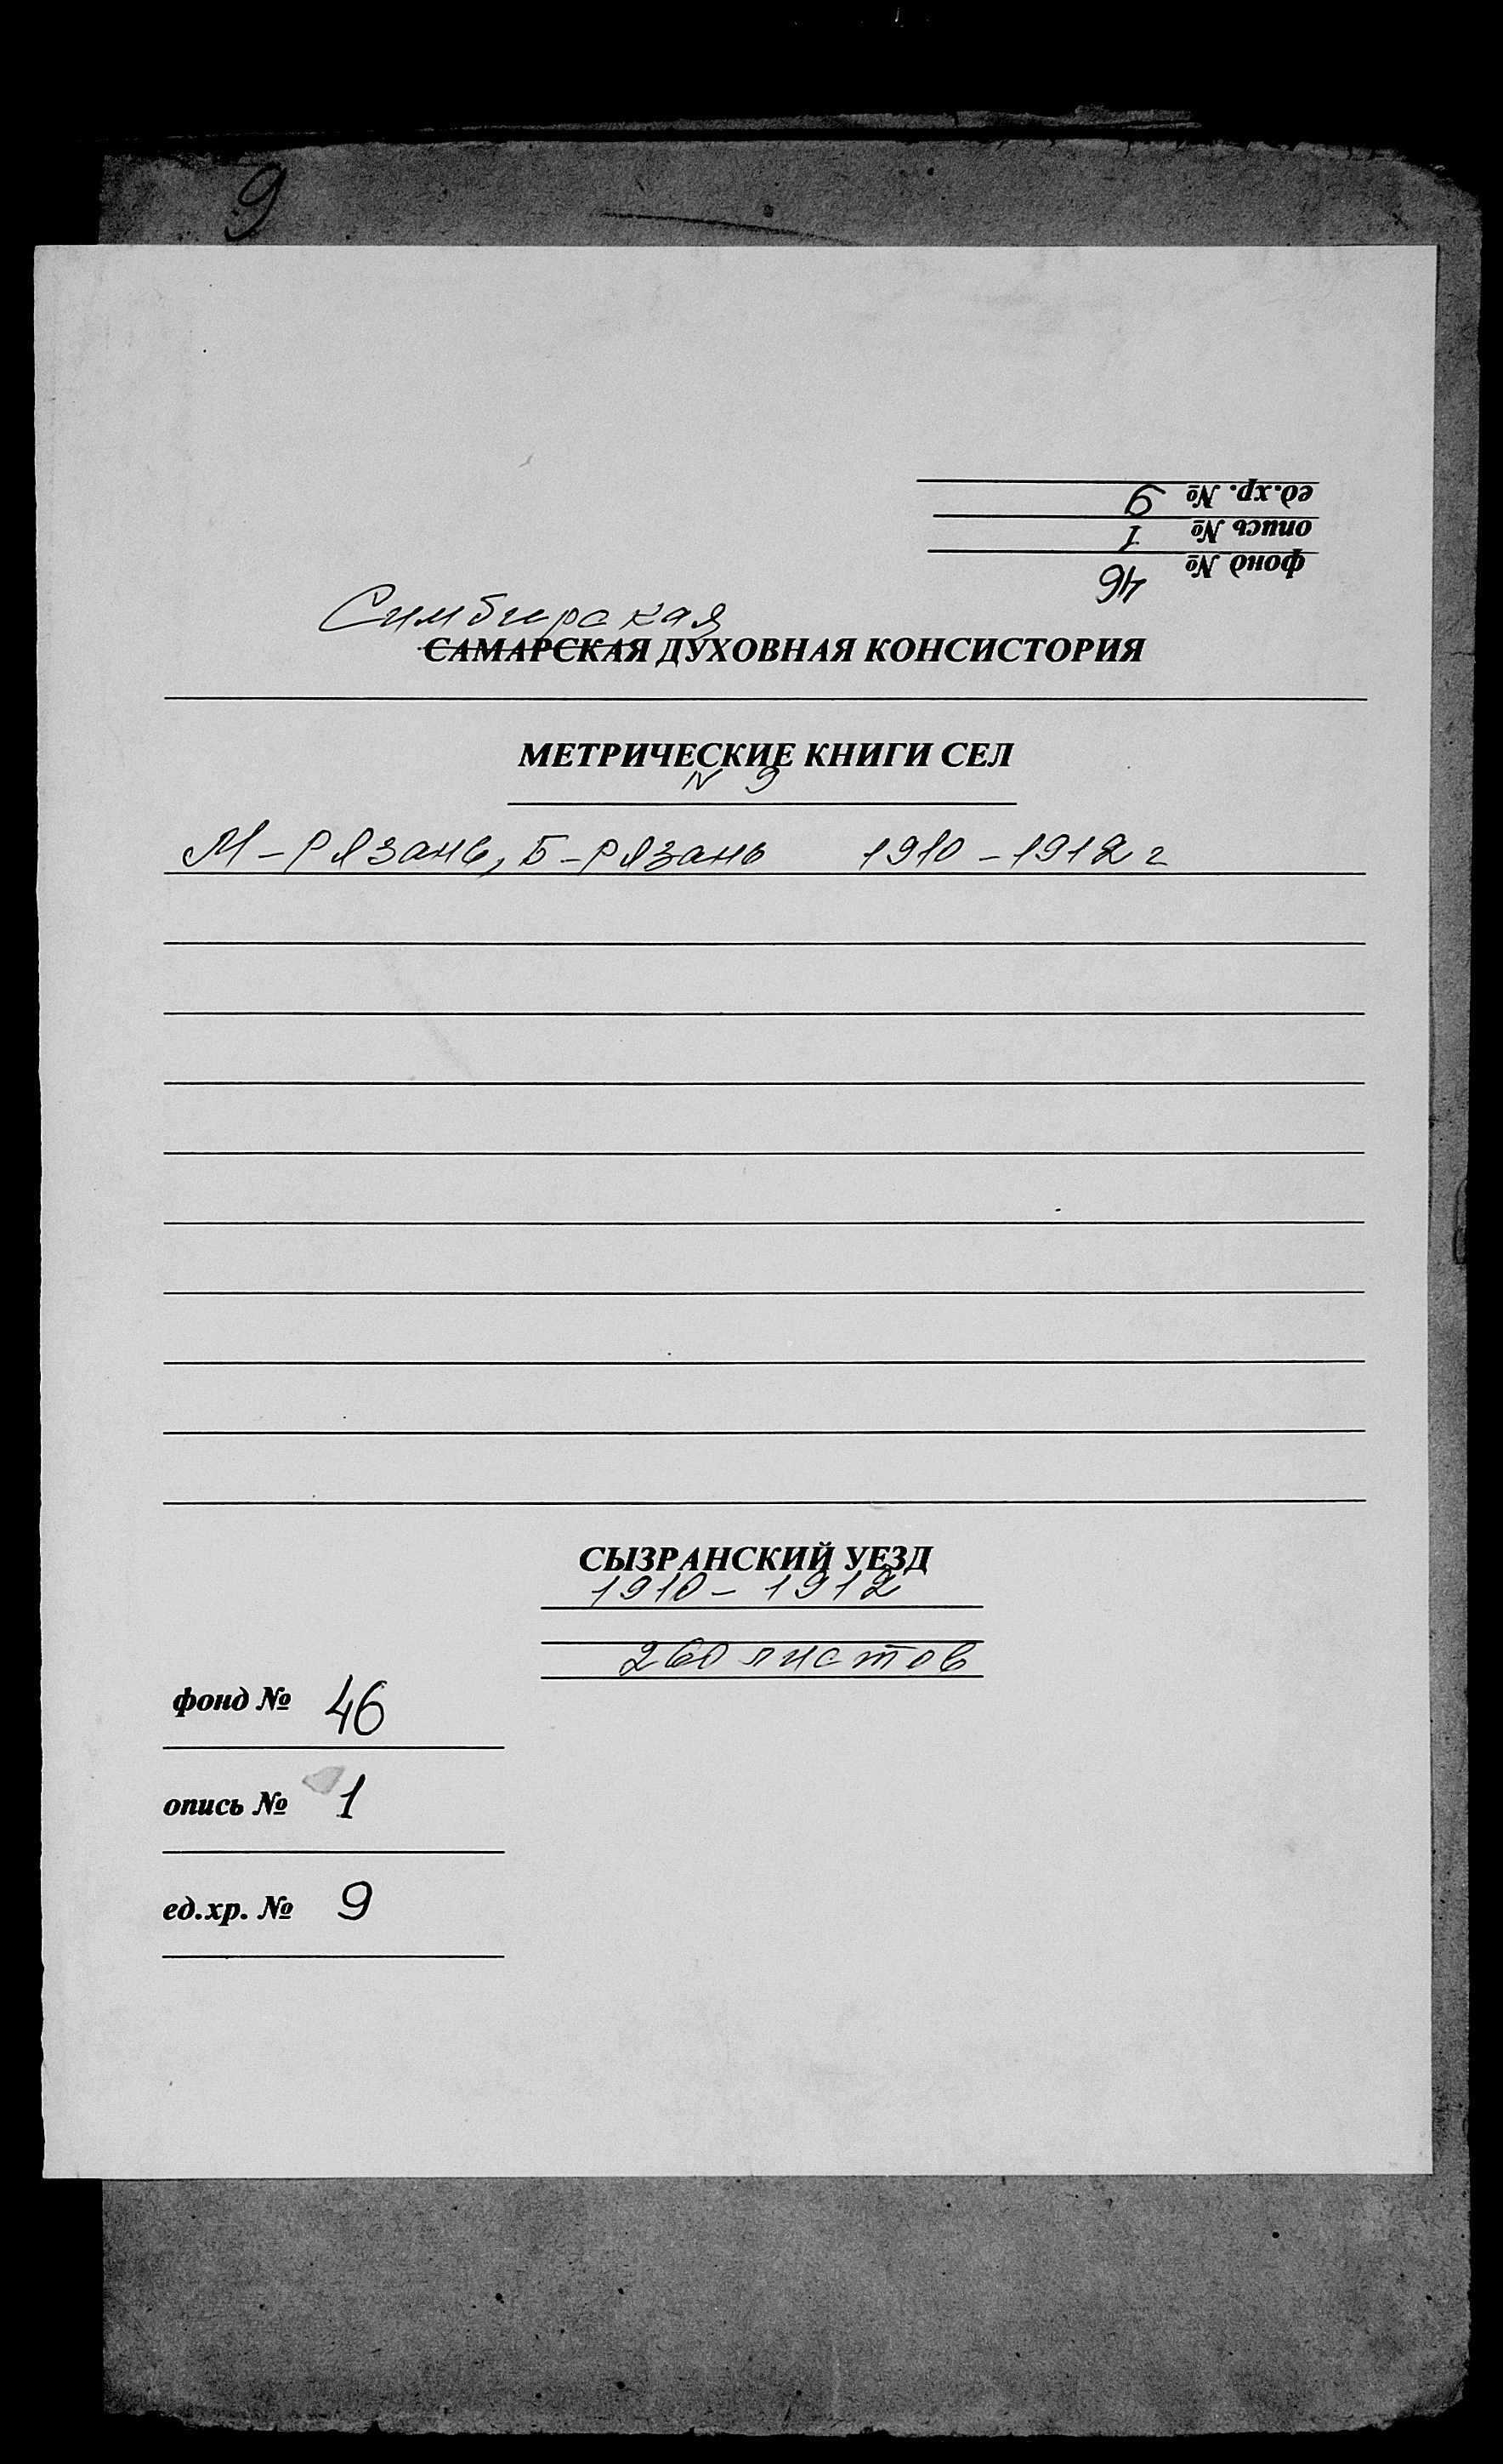 9
ед.хр. № 9
опись № 1
фонд № 46
Симбирская
САМАРСКАЯ ДУХОВНАЯ КОНСИСТОРИЯ
МЕТРИЧЕСКИЕ КНИГИ СЕЛ
N 9
М-Рязань, Б-Рязань 1910-1912 г
СЫЗРАНСКИЙ УЕЗД
1910-1912
260 листов
фонд № 46
опись № 1
ед.хр. № 9